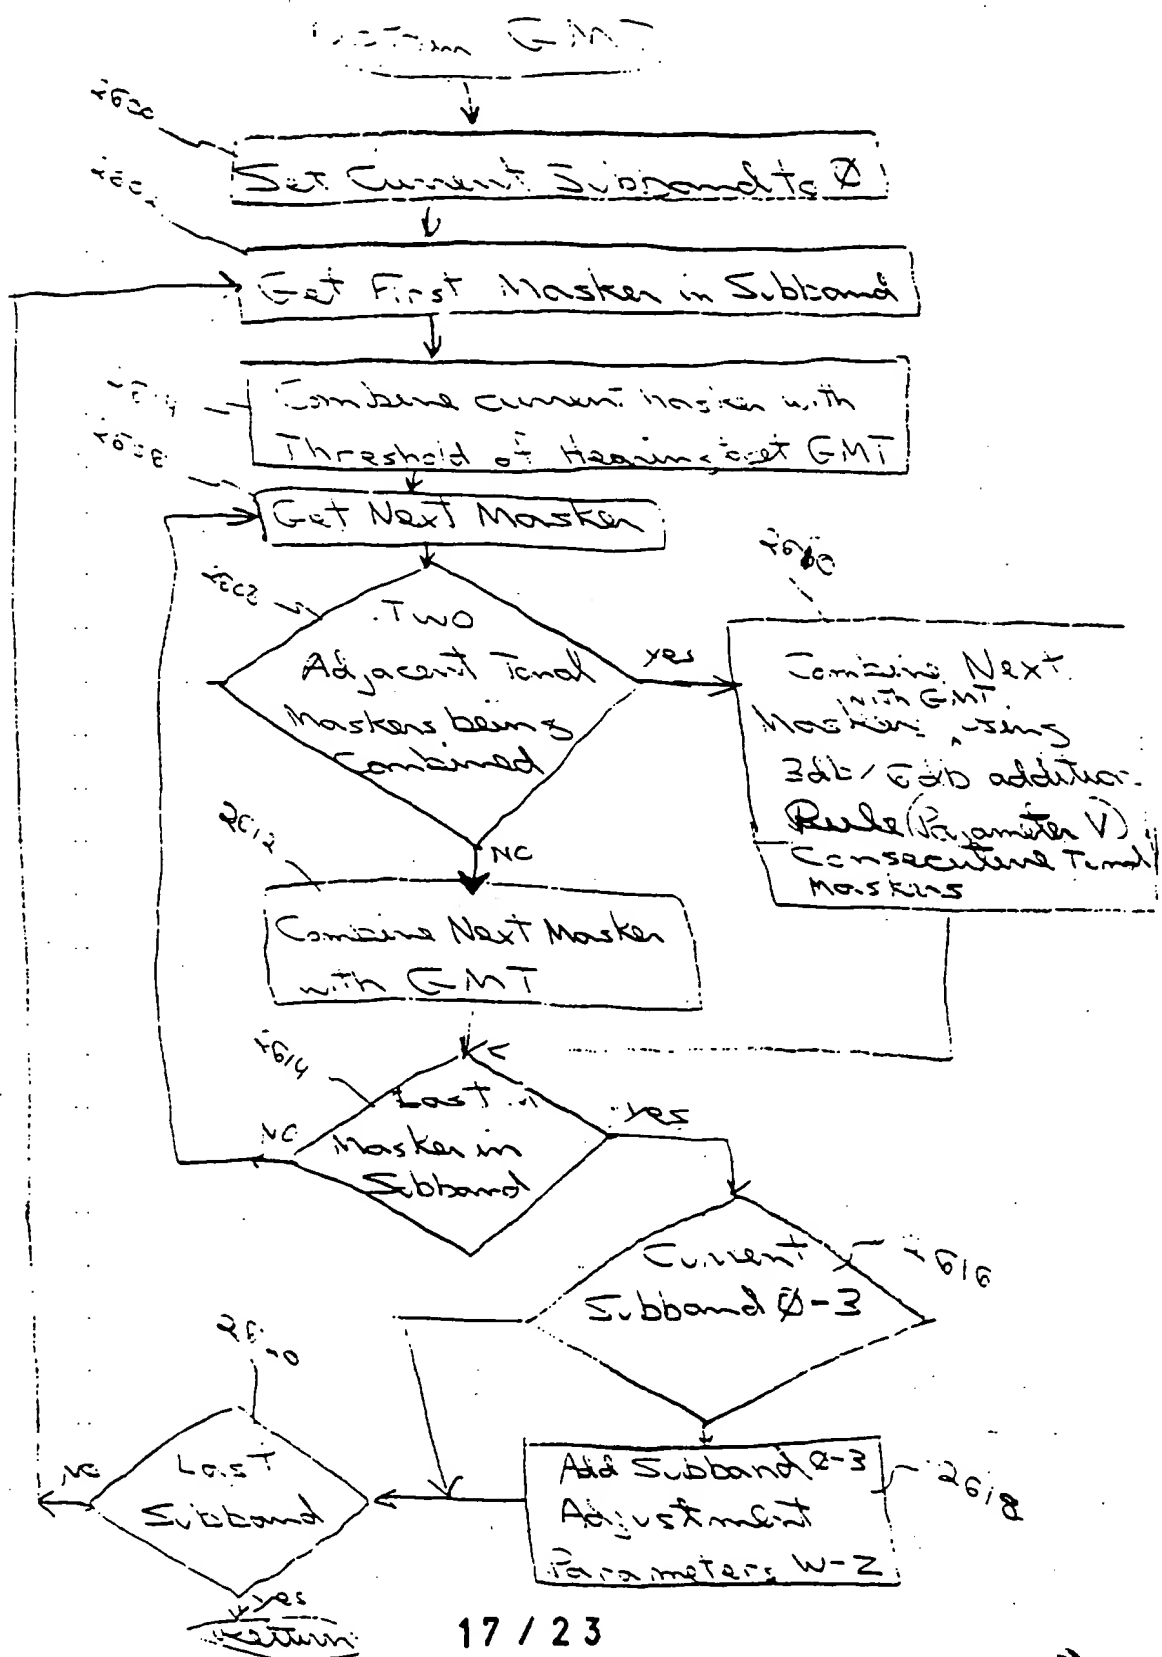 GMT
Set Current Subband to Ø
Get First Masker in Subband
Combine current masker with
Threshold of Hearing to get GMT
Get Next Masker
Two
Adjacent Tonal
Maskers being
Combined
yes
Combine Next
with GMT
Masker using
3db/6db addition
Rule (Parameter V)
Consecutive Tonal
Maskers
2612
NO
Combine Next Masker
with GMT
2614
Last
Masker in
Subband
NO
yes
Current
Subband Ø-3
2616
2620
Add Subband Ø-3
Adjustment
Parameters W-Z
2618
Last
Subband
NO
yes
Return
17/23